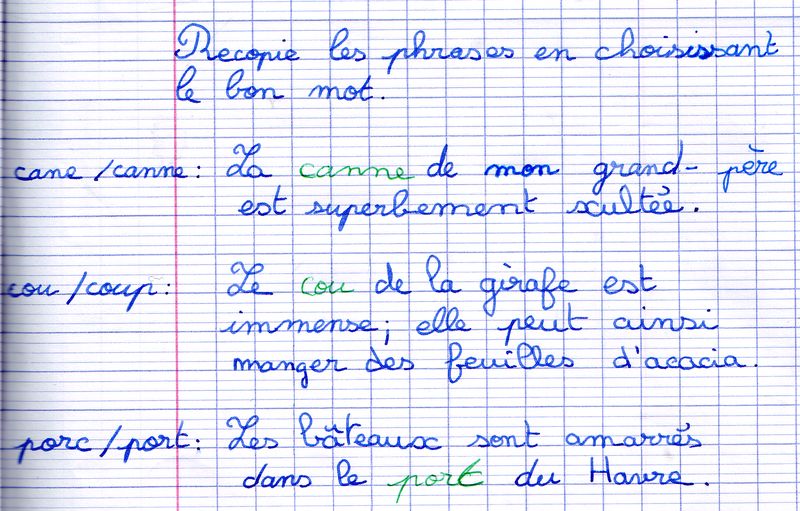 Recopie les phrases en choisissant
le bon mot.
cane /canne: La canne de mon grand- père
est superbement scultée.
cou /coup: Le cou de la girafe est
immense; elle peut ainsi
manger des feuilles d'acacia.
porc/port: Les bâteaux sont amarrés
dans le port du Havre.